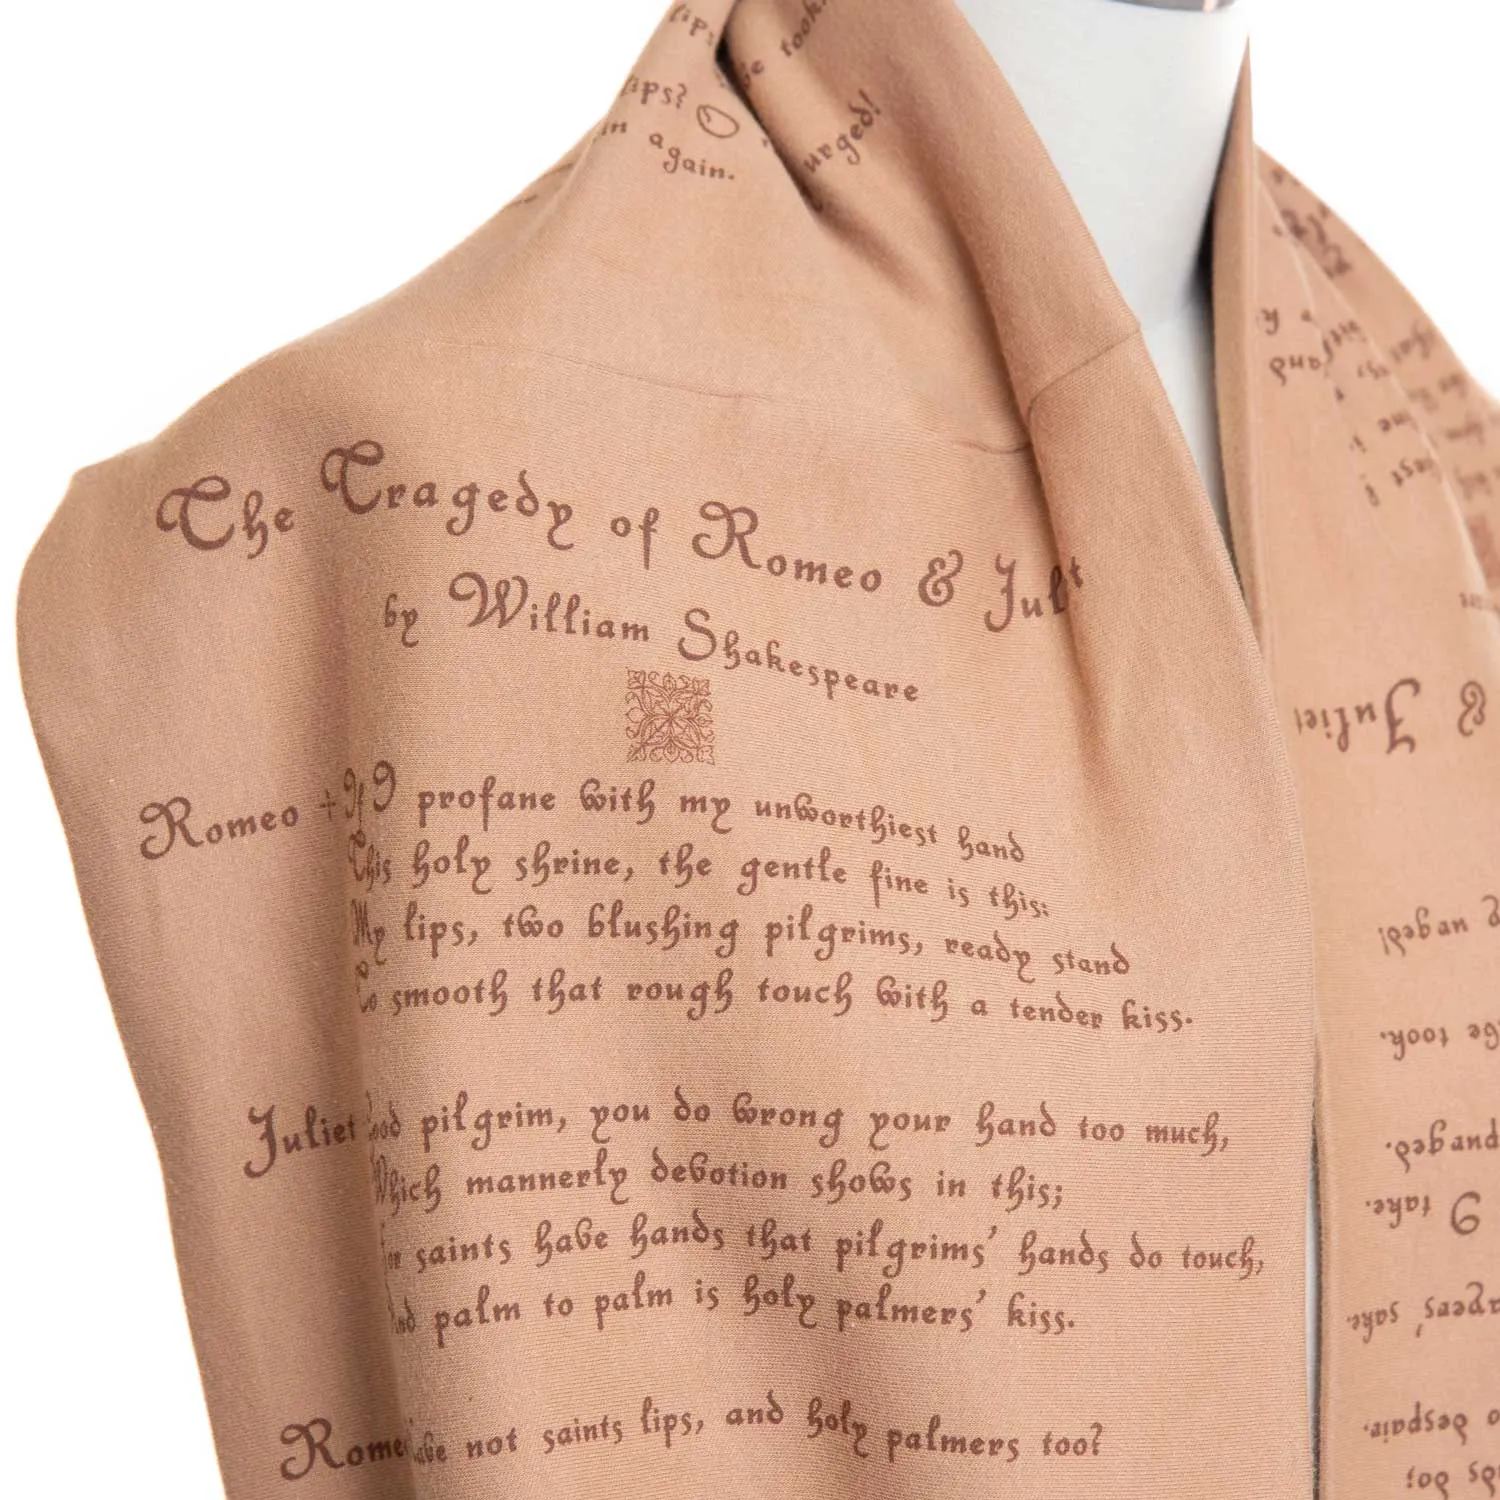 lips?
in again.
took.
urged!
The Tragedy of Romeo & Jul t
by William Shakespeare
Romeo + If I profane with my unworthiest hand
This holy shrine, the gentle fine is this:
My lips, two blushing pilgrims, ready stand
To smooth that rough touch with a tender kiss.
Juliet ood pilgrim, you do wrong your hand too much,
Which mannerly devotion shows in this;
For saints have hands that pilgrims' hands do touch,
And palm to palm is holy palmers' kiss.
Romeo ave not saints lips, and holy palmers too?
and
& Juliet
urged!
took.
purged.
I take.
sake.
despair.